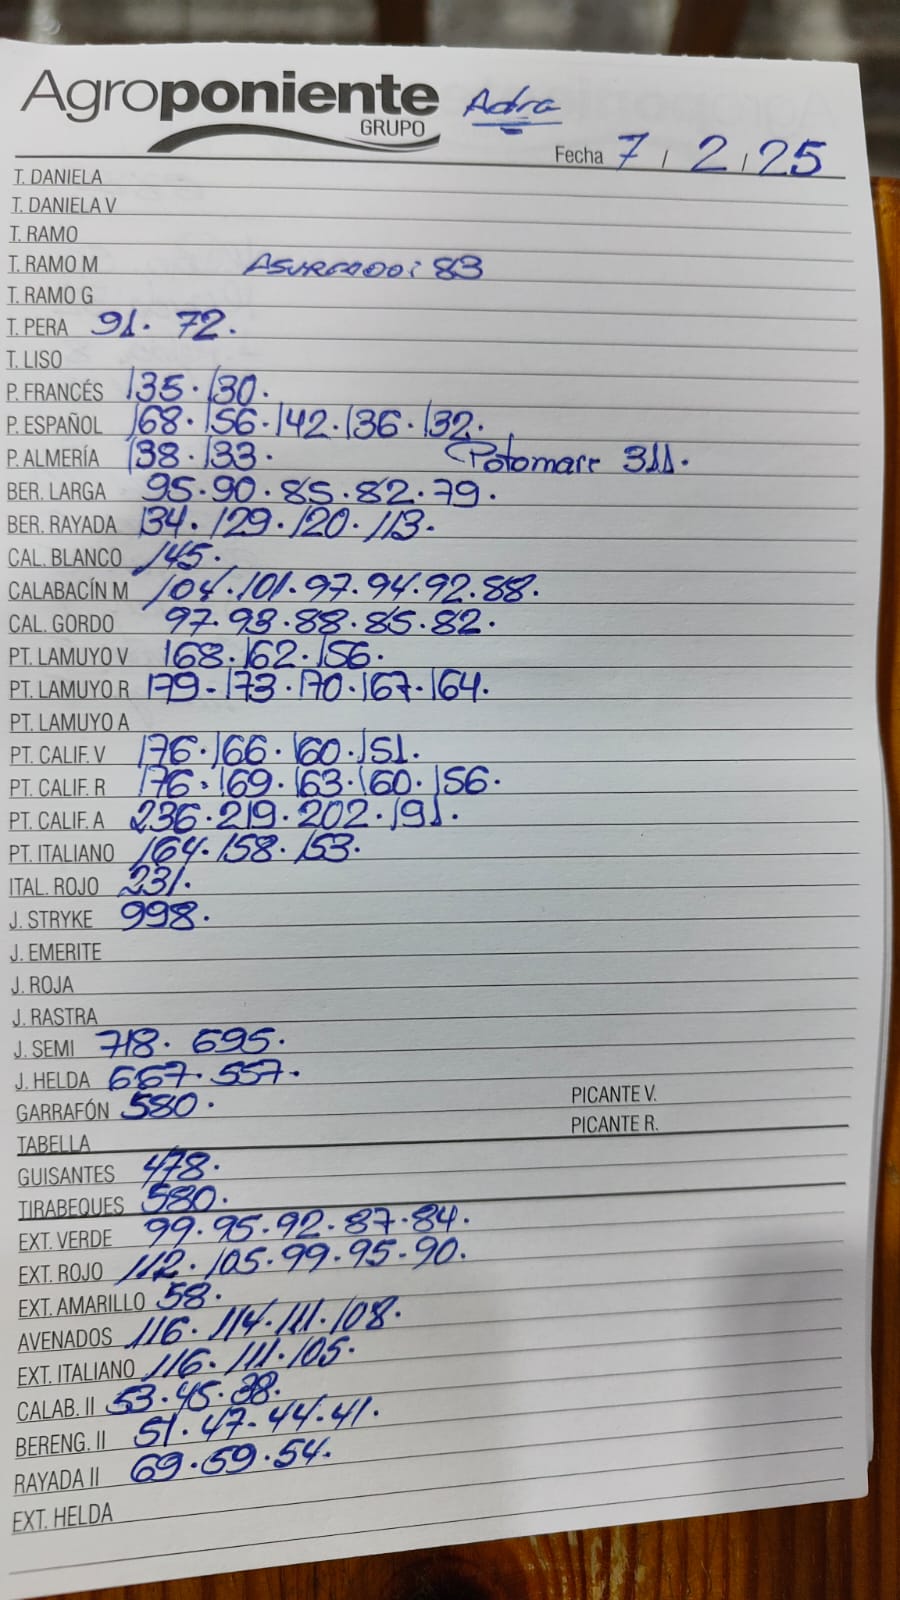 Agroponiente Adra
GRUPO
Fecha 7 / 2 / 25
T. DANIELA
T. DANIELA V
T. RAMO
T. RAMO M ASURCADO: 83
T. RAMO G
T. PERA 91. 72.
T. LISO
P. FRANCÉS 135. 130.
P. ESPAÑOL 168. 156. 142. 136. 132.
P. ALMERÍA 138. 133. Potomarr 311.
BER. LARGA 95. 90. 85. 82. 79.
BER. RAYADA 134. 129. 120. 113.
CAL. BLANCO 145.
CALABACÍN M 104. 101. 97. 94. 92. 88.
CAL. GORDO 97. 93. 88. 85. 82.
PT. LAMUYO V 168. 162. 156.
PT. LAMUYO R 179-173. 170. 167. 164.
PT. LAMUYO A
PT. CALIF. V 176. 166. 160. 151.
PT. CALIF. R 176. 169. 163. 160. 156.
PT. CALIF. A 236. 219. 202. 191.
PT. ITALIANO 164. 158. 153.
ITAL. ROJO 231.
J. STRYKE 998.
J. EMERITE
J. ROJA
J. RASTRA
J. SEMI 718. 695.
J. HELDA 667. 557.
GARRAFÓN 580. PICANTE V.
TABELLA PICANTE R.
GUISANTES 478.
TIRABEQUES 580.
EXT. VERDE 99. 95. 92. 87. 84.
EXT. ROJO 112. 105. 99. 95. 90.
EXT. AMARILLO 58.
AVENADOS 116. 114. 111. 108.
EXT. ITALIANO 116. 111. 105.
CALAB. II 53. 45. 38.
BERENG. II 51. 47-44. 41.
RAYADA II 69. 59. 54.
EXT. HELDA